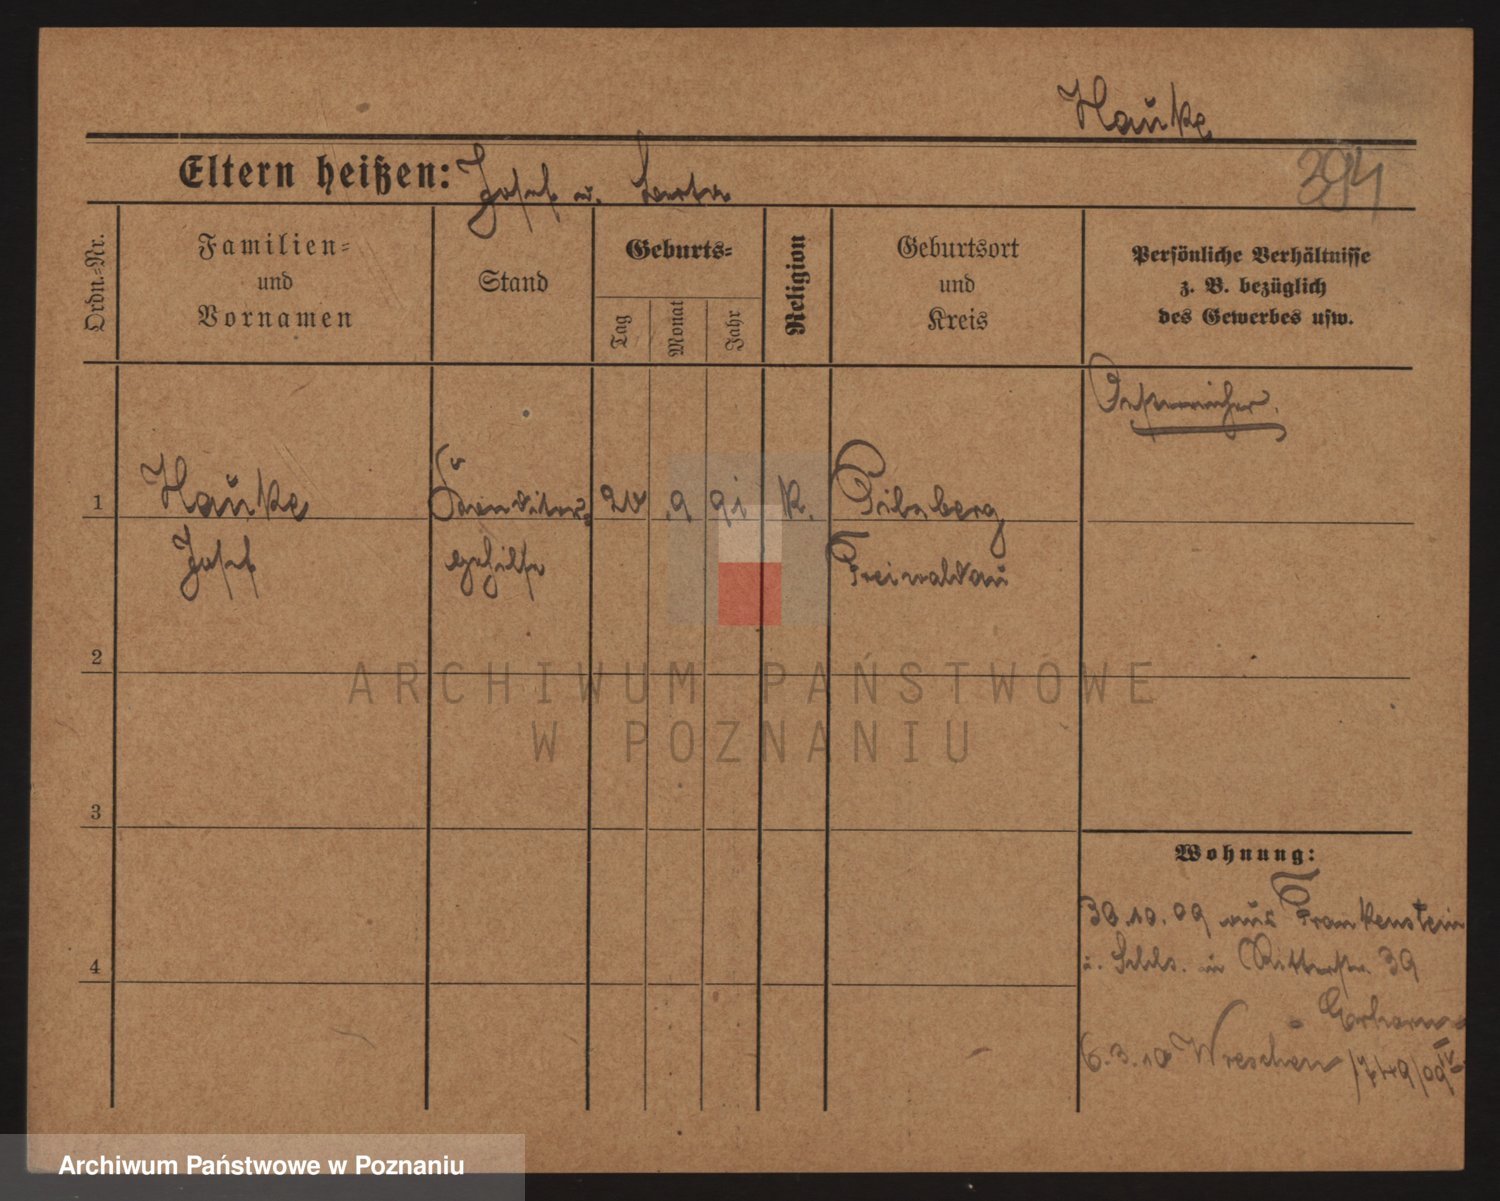 Hauke
Eltern heißen: Josef u. Berta
394
Ordn.-Nr.
Familien- und Vornamen
Stand
Geburts-
Tag
Monat
Jahr
Religion
Geburtsort und Kreis
Persönliche Verhältnisse z. B. bezüglich des Gewerbes usw.
Oesterreicher.
1
Hauke
9
91
k.
Josef
gehilfe
Freiwaldau
2
ARCHIWUM PAŃSTWOWE
W POZNANIU
3
Wohnung:
30.10.09 aus Frankenstein
i. Schles. in Ritterstr. 39
4
6.3.10 Wreschen
Archiwum Państwowe w Poznaniu